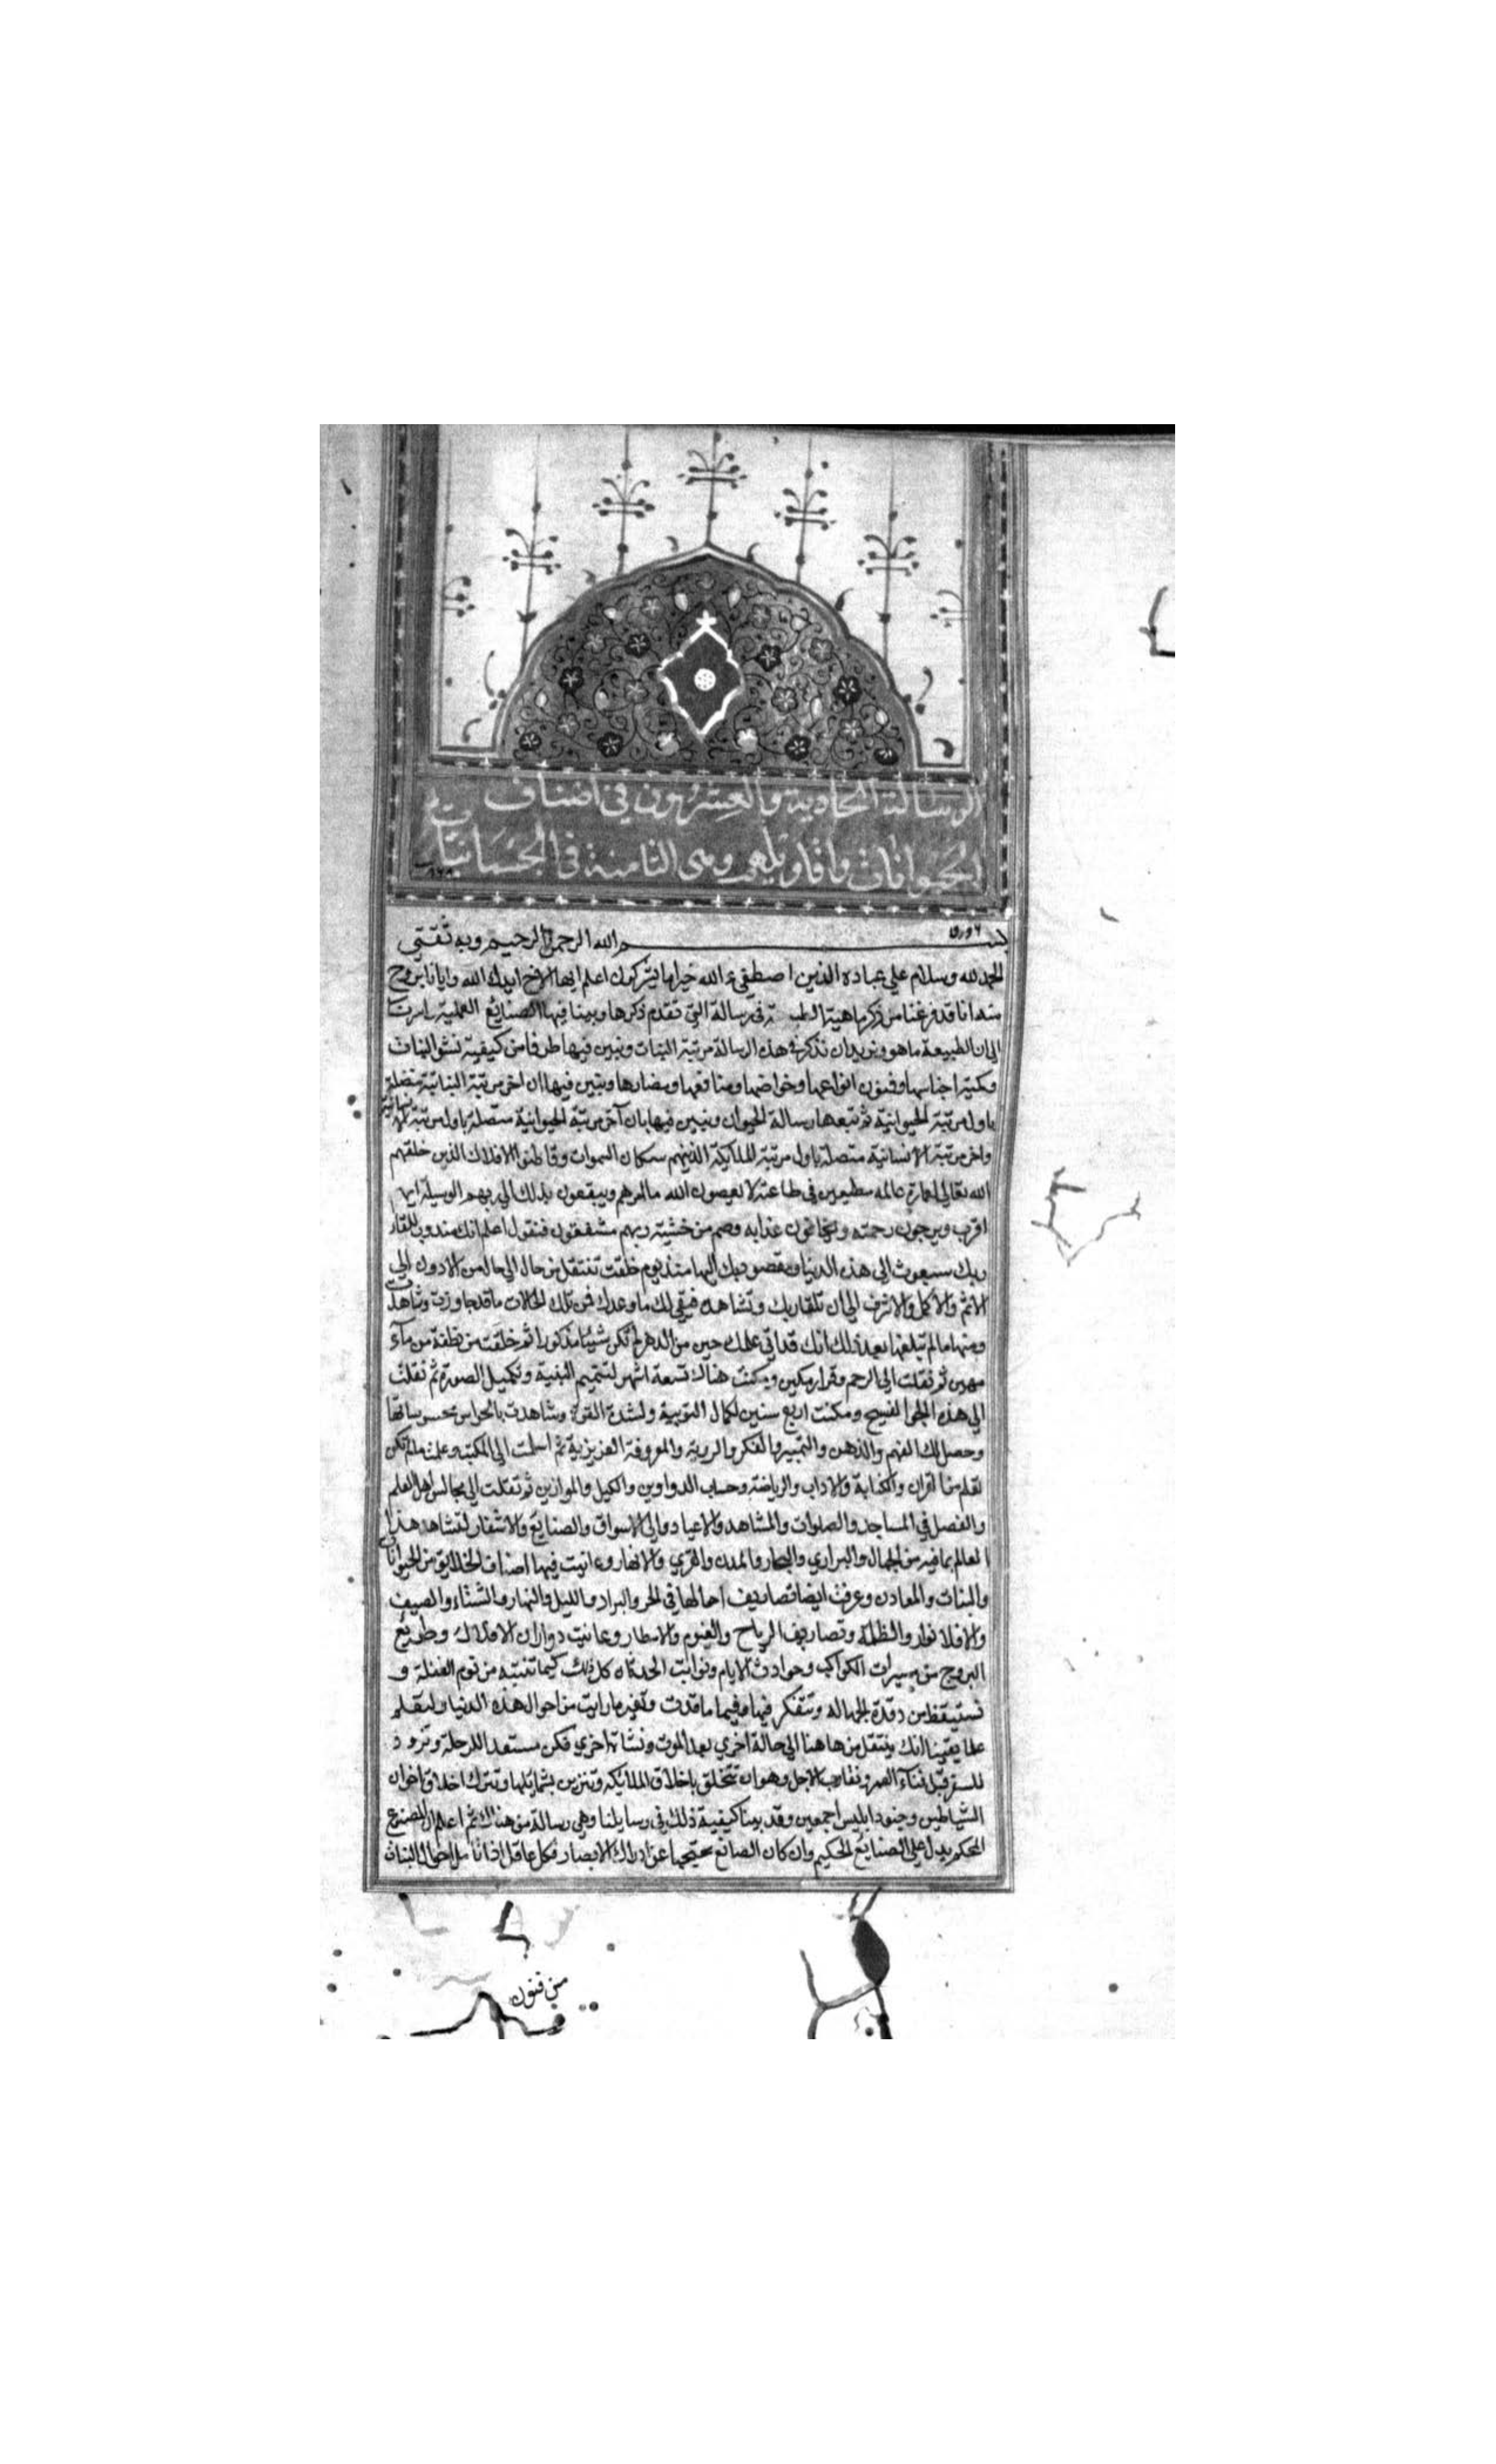 الرسالة الحادية والعشرون في اصناف
الحيوانات واقاويلهم وهى الثامنة في الجسمانيات
بسم الله الرحمن الرحيم وبه ثقتي
الحمد لله وسلام على عباده الذين اصطفى ءالله خير اما يشركون اعلم ايها الاخ ايدك الله وايانا بروح
منه انا قد فرغنا من ذكر ماهية الطبيعة في رسالة التي تقدم ذكرها وبينا فيها الصنايع العملية
الى ان الطبيعة ما هو ونريد ان نذكر في هذه الرسالة مرتبة النبات ونبين فيها طرفا من كيفية نشو النبات
وكمية اجناسها وفنون انواعها وخواصها ومنافعها ومضارها ونبين فيها ان اخر مرتبة النباتية متصلة
باول مرتبة الحيوانية ثم تبعها رسالة الحيوان ونبين فيها بان آخر مرتبة الحيوانية متصلة باول مرتبة
واخر مرتبة الانسانية متصلة باول مرتبة الملايكة الذينهم سكان السموات وقاطنو الافلاك الذين خلقهم
الله تعالى لعمارة عالمه مطيعين في طاعته لا يعصون الله ما امرهم ويبتغون بذلك الى ربهم الوسيلة ايهم
اقرب ويرجون رحمته ويخافون عذابه وهم من خشية ربهم مشفقون فنقول اعلم انك مندوب للقاء
ربك مبعوث الى هذه الدنيا ومقصود بك اليها منذ يوم خلقت تنتقل من حال الى حال من الادون الى
الاتم والاكمل والاشرف الى ان تلقا ربك وتشاهده فيوفى لك ما وعدك فمن تلك الحالات ما قد جاوزت وشاهدت
ومنها ما لم تبلغها بعد ذلك انك قد اتى عليك حين من الدهر لم تكن شيئا مذكورا ثم خلقت من نطفة من مآء
مهين ثم نقلت الى الرحم وقرار مكين ومكثت هناك تسعة اشهر لتتميم البنية وتكميل الصورة ثم نقلت
الى هذه الجو الفسيح ومكثت اربع سنين لكمال التربية ولشدة القوة وشاهدت بالحواس محسوساتها
وحصل لك الفهم والذهن والتمييز والفكر والروية والمعروفة الغريزية ثم اسلمت الى المكتب وعلمت ما لم تكن
تعلم من القران والكتابة والاداب والرياضة وحساب الدواوين والكيل والموازين ثم نقلت الى مجالس اهل العلم
والفضل في المساجد والصلوات والمشاهد والاعياد والى الاسواق والصنايع والاسفار لتشاهد هذا
العالم بما فيه من الجبال والبراري والبحار والمدن والقرى والانهار وعاينت فيها اصناف الخلايق من الحيوانات
والنبات والمعادن وعرفت ايضا تصاريف احوالها في الحر والبرد والليل والنهار والشتاء والصيف
والانوار والظلمة وتصاريف الرياح والغيوم والامطار وعاينت دوران الافلاك وطوالع
البروج من مسيرات الكواكب وحوادث الايام ونوائب الحدثان كل ذلك كيما تنتبه من نوم الغفلة و
تستيقظ من رقدة الجهالة وتتفكر فيها وفيما ما قدت وتغير ما رايت من احوال هذه الدنيا ولتعلم
علما يقينا انك ينتقل من هاهنا الى حالة اخرى بعد الموت ونشاة اخرى فكن مستعدا للرحلة وتزود
للسفر قبل فناء العمر وتقارب الاجل وهو ان تتخلق باخلاق الملائكة وتتزين بشمايلها وتترك اخلاق اخوان
الشياطين وجنود ابليس اجمعين وقد بينا كيفية ذلك في رسايلنا وهى رسالة من هناك ثم اعلم ان المصنوع
المحكم يدل على الصنايع الحكيم وان كان الصانع محتجبا عن ادراك الابصار فكل عاقل اذا تامل احوال النبات
من فنون